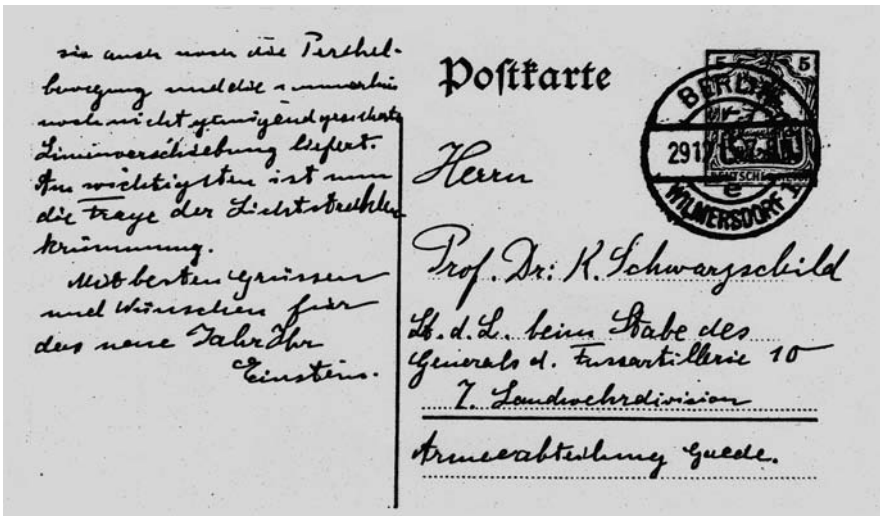 sie auch noch die Perihel-
bewegung und die immerhin
noch nicht genügend gesicherte
Linienverschiebung liefert.
Am wichtigsten ist nun
die Frage der Lichtstrahlen-
krümmung.
Mit besten Grüssen
und Wünschen für
das neue Jahr Ihr
Einstein.
Postkarte
5 5
BERLIN
2912
DEUTSCHES
e
WILMERSDORF 1
Herrn
Prof. Dr: K. Schwarzschild
Lt. d. L. beim Stabe des
Generals d. Fussartillerie 10
7. Landwehrdivision
Armeeabteilung Gaede.